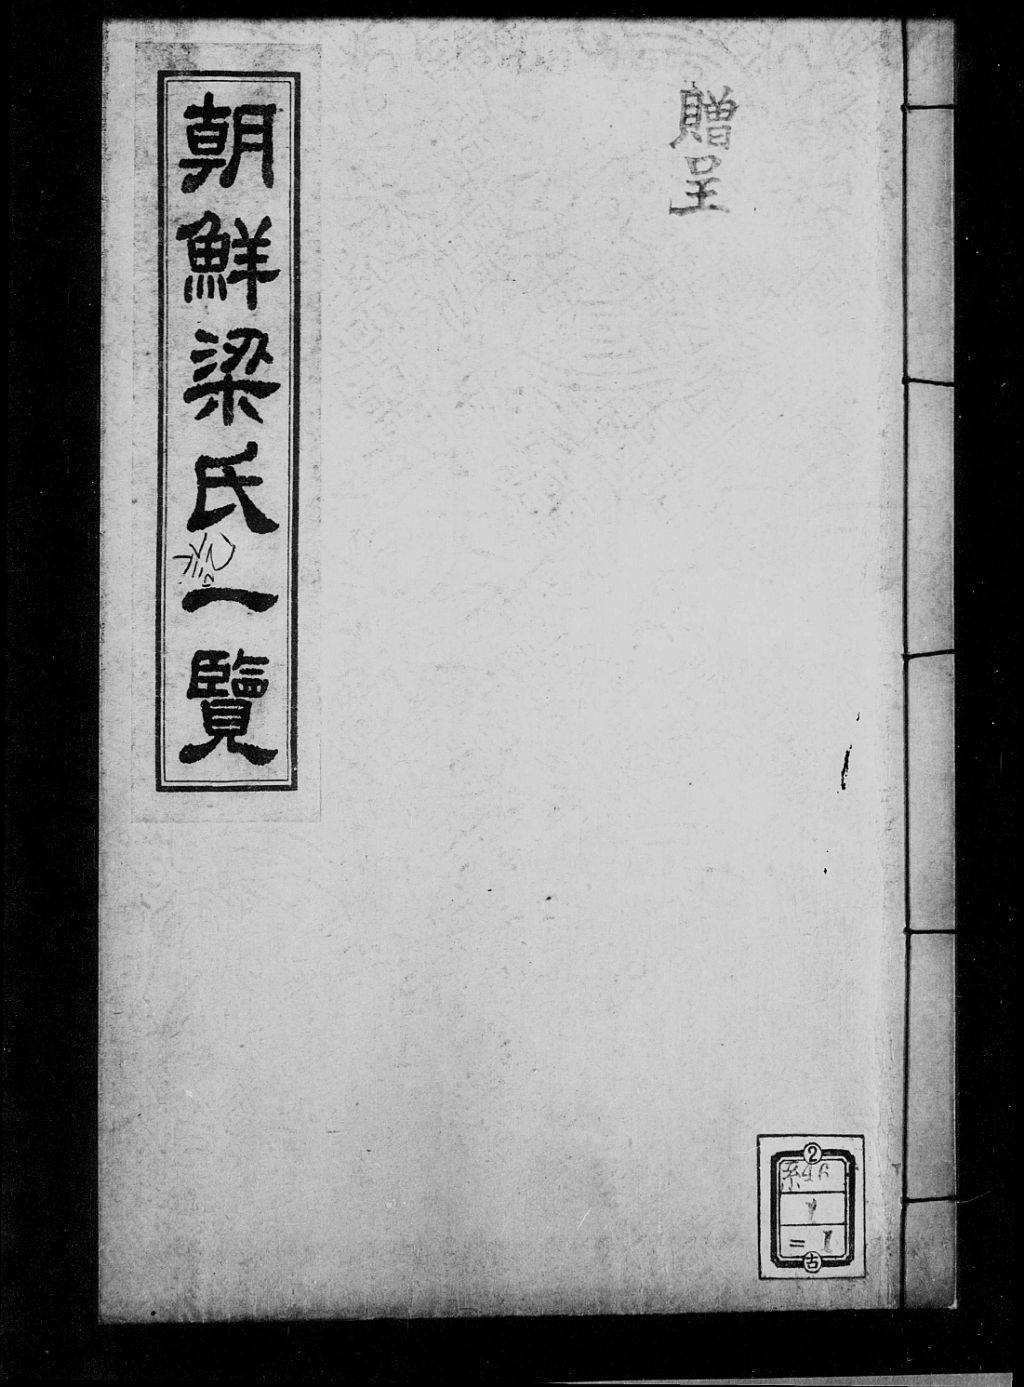 贈呈
朝鮮梁氏一覽
2
系46
1
= 1
古